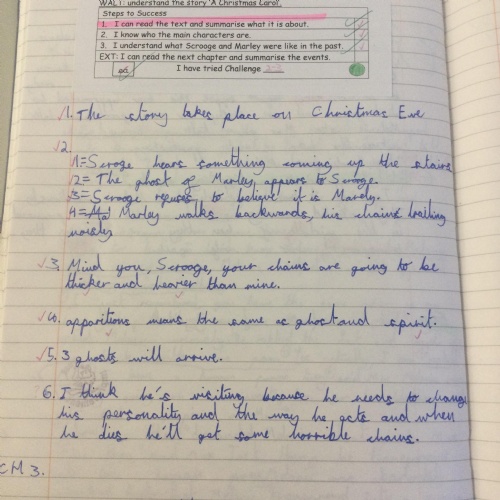 WALT: understand the story 'A Christmas Carol'.
Steps to Success
1. I can read the text and summarise what it is about.
2. I know who the main characters are.
3. I understand what Scrooge and Marley were like in the past.
EXT: I can read the next chapter and summarise the events.
I have tried Challenge
1. The story takes place on Christmas Eve
2.
1=Scroge hears something coming up the stairs
2= The ghost of Marley appears to Scrooge.
3=Scrooge refuses to believe it is Marely.
4= Marley walks backwards, his chains trailing
noisly
3. Mind you, Scrooge, your chains are going to be
thicker and hevier than mine.
4. apparitions means the same as ghost and spirit.
5. 3 ghosts will arrive.
6. I think he's visiting because he needs to change
his personality and the way he acts and when
he dies he'll get some horrible chains.
CM 3.